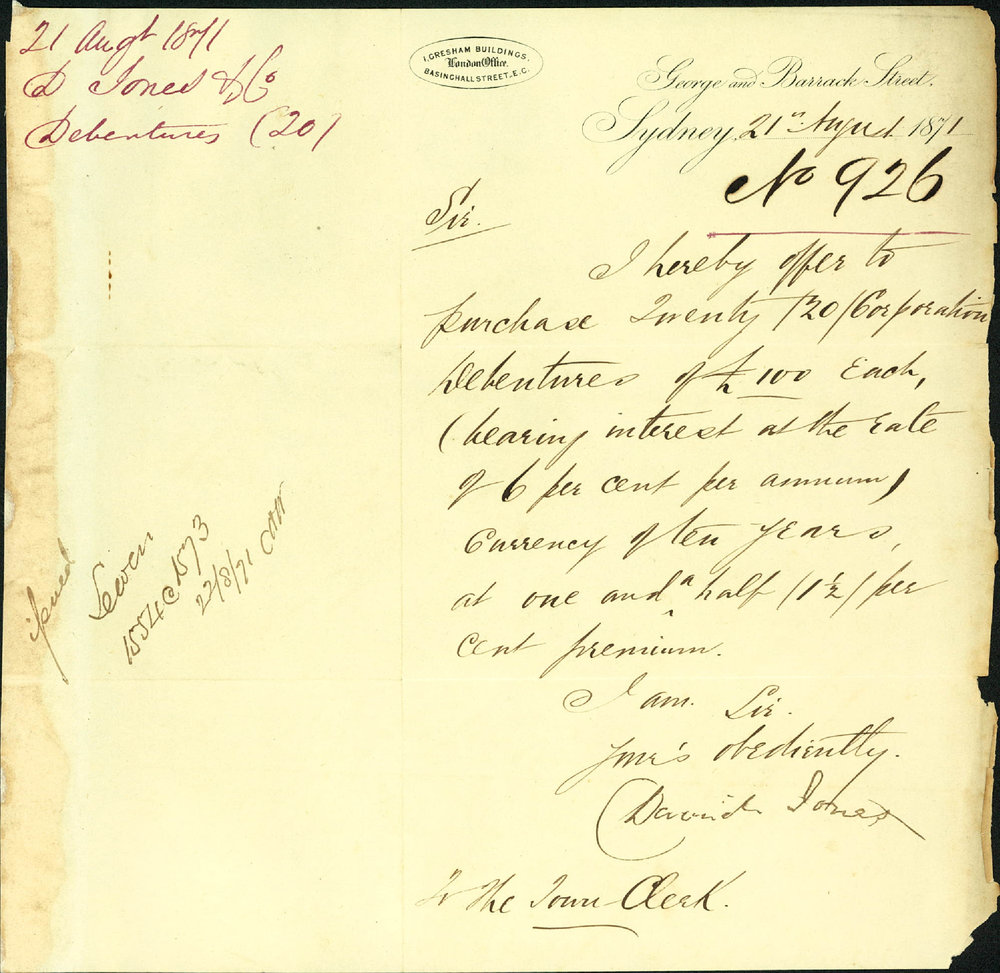 21 Augt 1871
D Jones & Co
Debentures (20)
1, GRESHAM BUILDINGS,
London Office.
BASINGHALL STREET, E.C.
George and Barrack Street.
Sydney, 21st August 1871
No 926
Sir.
I hereby offer to
purchase Twenty (20) Corporation
Debentures of £100 Each,
(bearing interest at the rate
of 6 per cent per annum)
Currency of ten years,
at one and a half (1½) per
cent premium.
I am. Sir.
Your's obediently.
David Jones
To The Town Clerk.
issued
Seven
1554 @ 1573
22/8/71